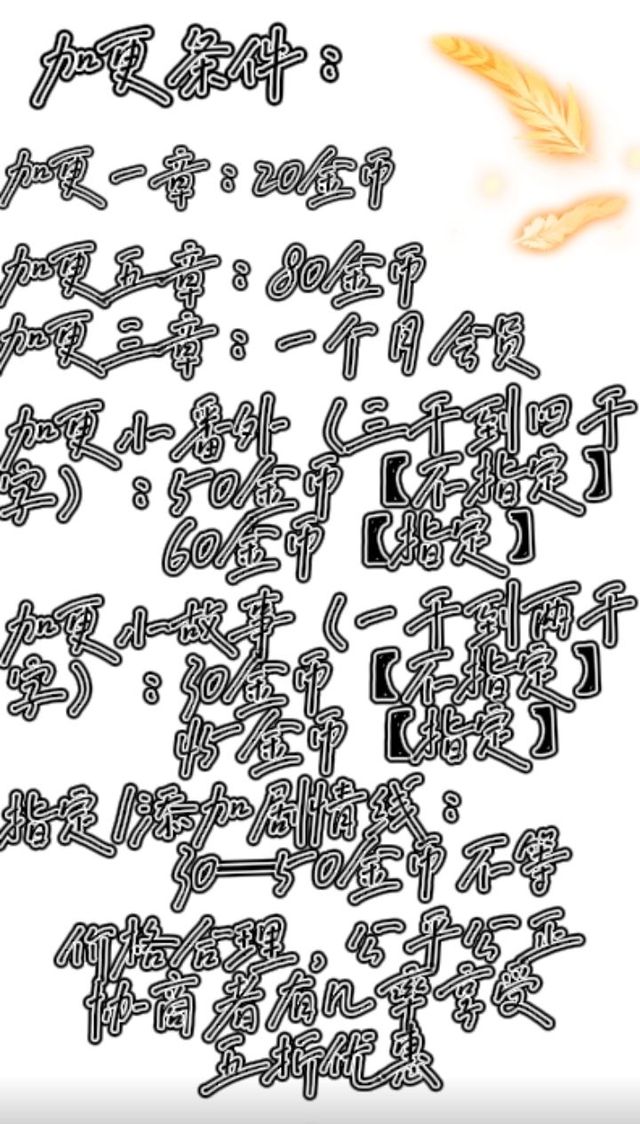 加更条件：
加更一章：20金币
加更五章：80金币
加更三章：一个月会员
加更小番外（三千到四千
字）：50金币【不指定】
60金币【指定】
加更小故事（一千到两千
字）：30金币【不指定】
45金币【指定】
指定/添加剧情线：
30—50金币不等
价格合理，公平公正
协商者有几率享受
五折优惠